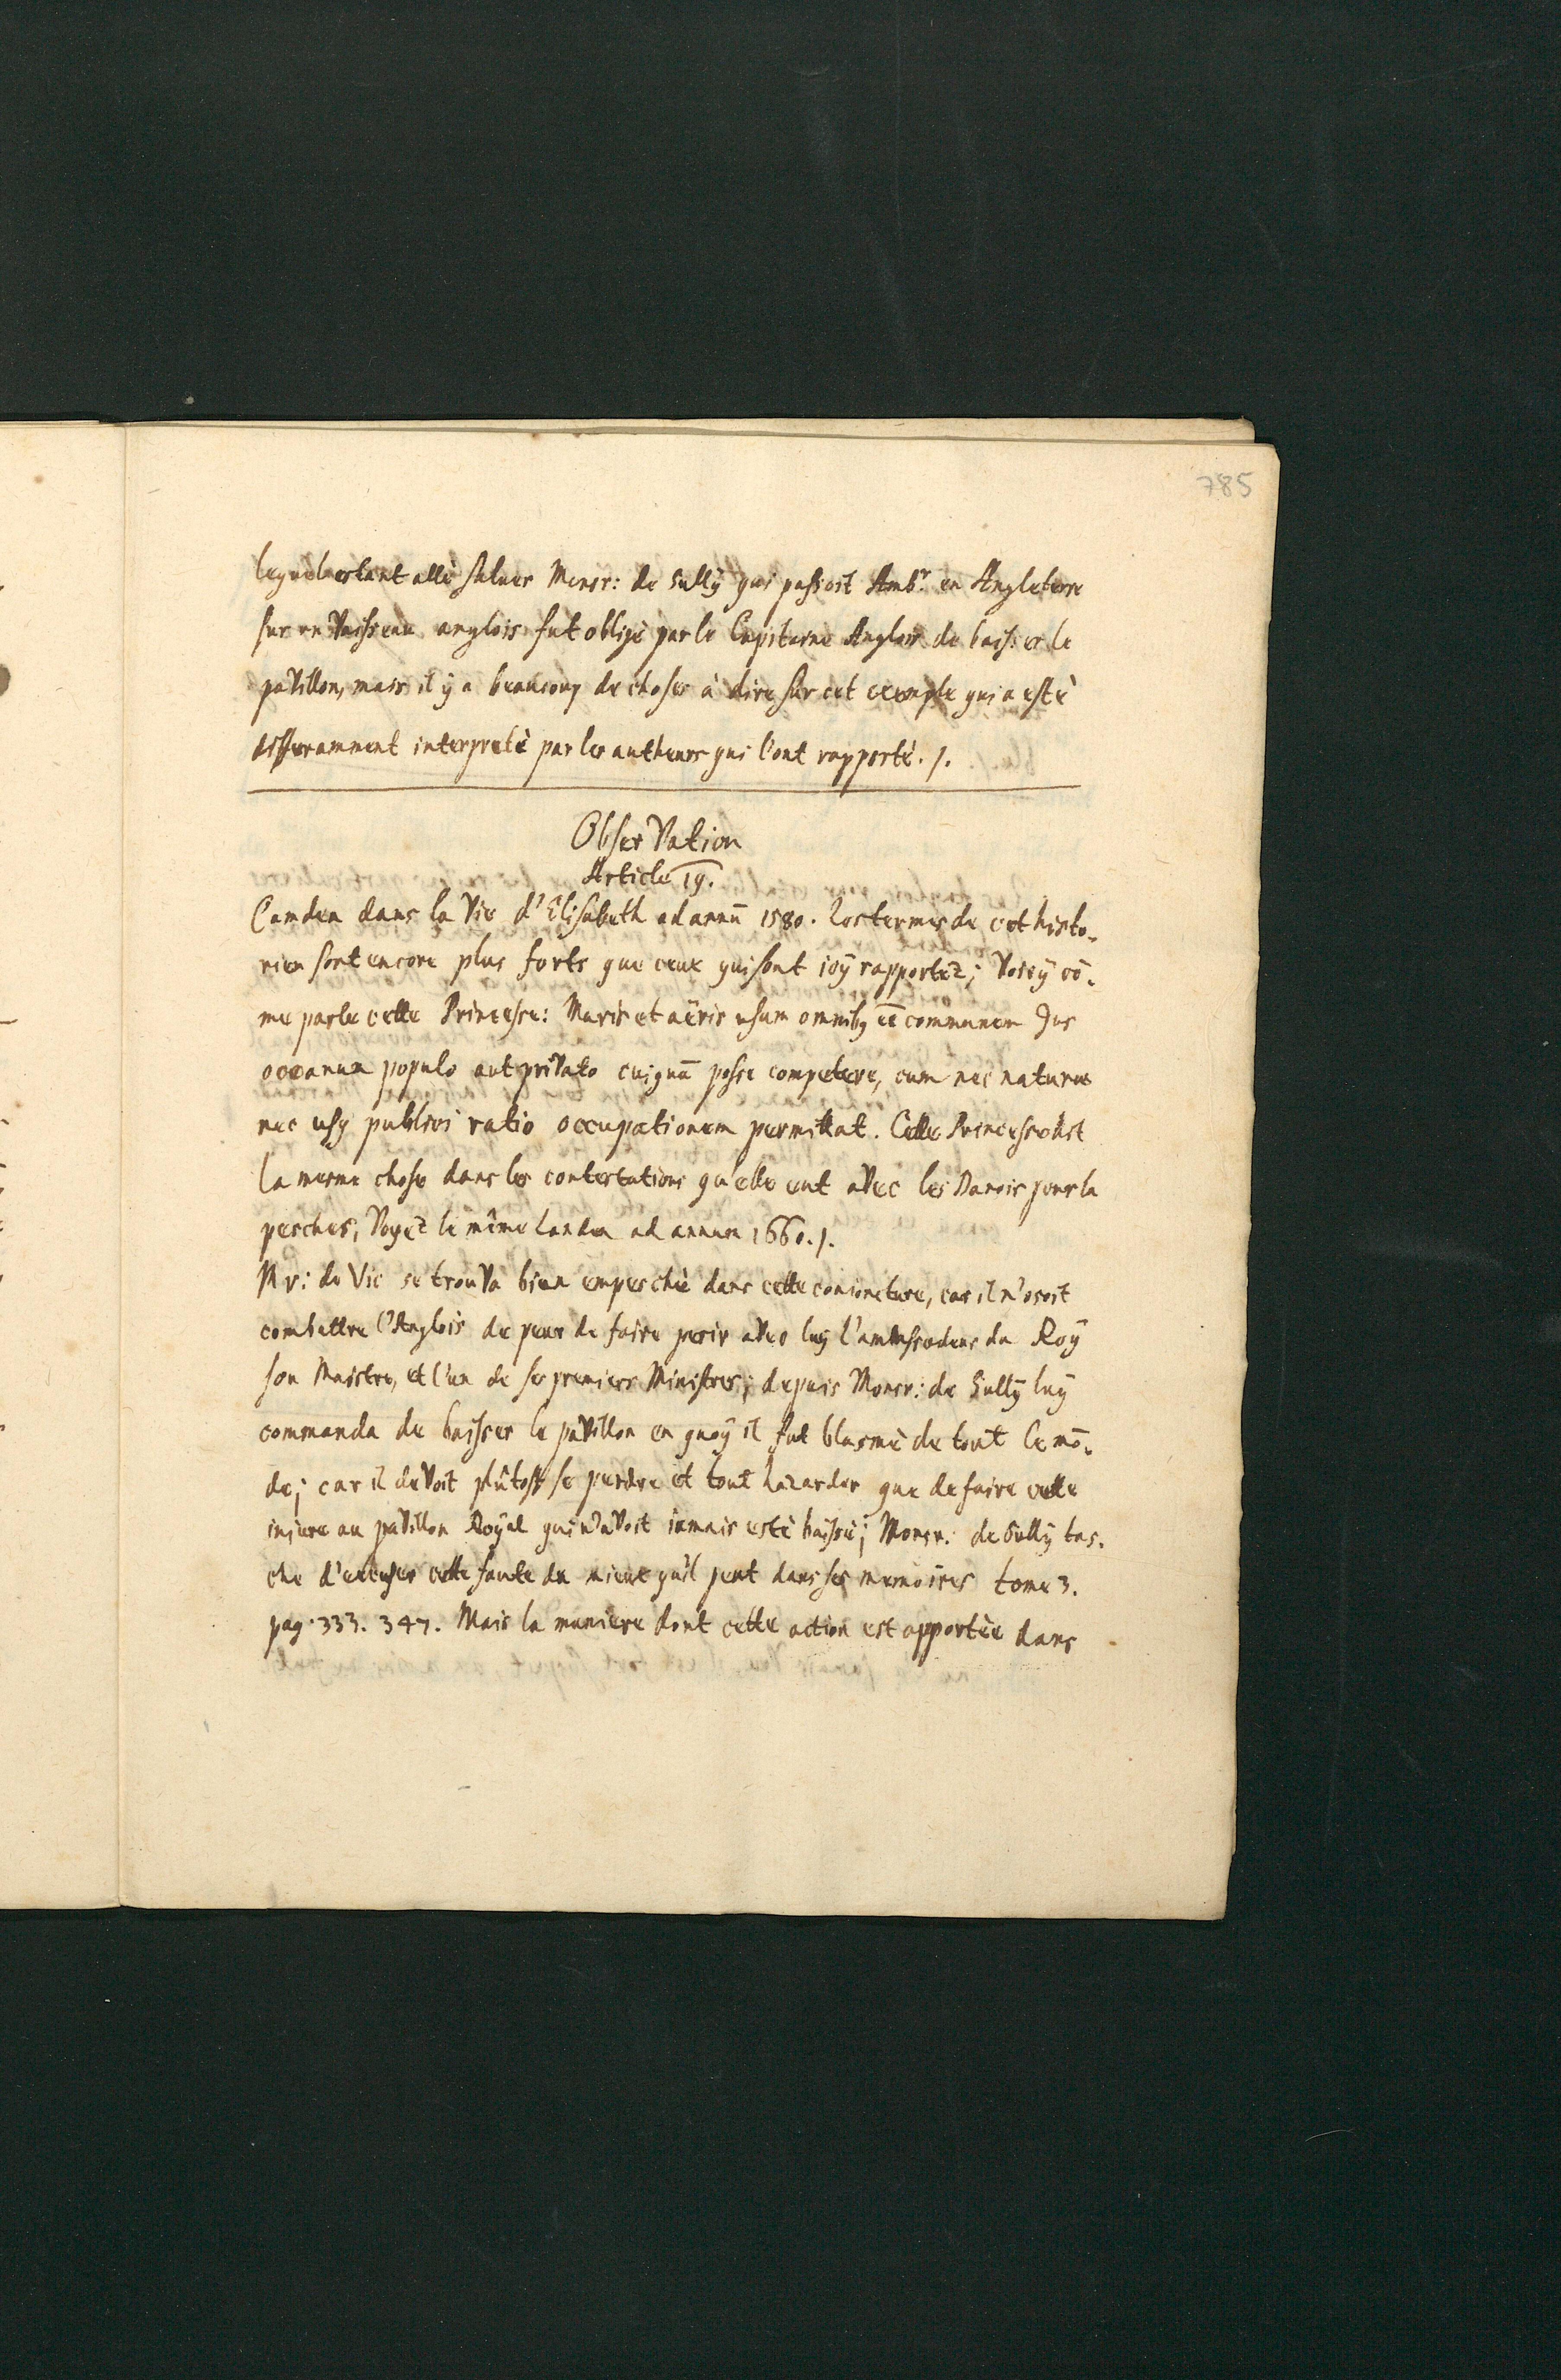 785
lequel estant allè saluer Monsr: de Sullÿ qui passoit Ambr. en Angleterre
sur un Vaisseau anglois fut obligè par le Capitaine Anglois de baisser le
paVillon, mais il ÿ a beaucoup de choses à dire sur cet exemple qui a estè
differamment interpretè par les autheurs qui l'ont rapportè./.
ObserVation
Article 19.
Camden dans la Vie d'Elisabeth ad annū 1580. Les termes de cet histo-
rien sont encore plus forts que ceux qui sont icÿ rapportez; Voicÿ cō-
me parle cette Princesse: Maris et aëris usum omnibꝫ eē communem Jus
oceanum populo aut priVato cuiquā posse competere, cum nec naturæ
nec usꝫ publici ratio occupationem permittat. Cette Princesse dit
la mesme chose dans les contestations qu'elle eut aVec les Danois pour la
pesches, Voyez le même Landen ad annum 1660./.
Mr: de Vic se trouVa bien empeschè dans cette conioncture, car il n'osoit
combattre l'Anglois de peur de faire perir aVec luÿ l'ambassadeur du Roÿ
son Maistre, et l'un de ses premiers Ministres; depuis Monsr: de Sullÿ luÿ
commanda de baisser le paVillon en quoÿ il fut blasmè de tout le mō-
de; car il deVoit plûtost se perdre et tout hazarder que de faire cette
injure au paVillon Roÿal qui n'aVoit iamais estè baissè; Monsr: de Sullÿ tas-
che d'excuser cette faute du mieux qu'il peut dans ses memoires tome 3.
pag. 333. 347. Mais la maniere dont cette action est apportèe dans